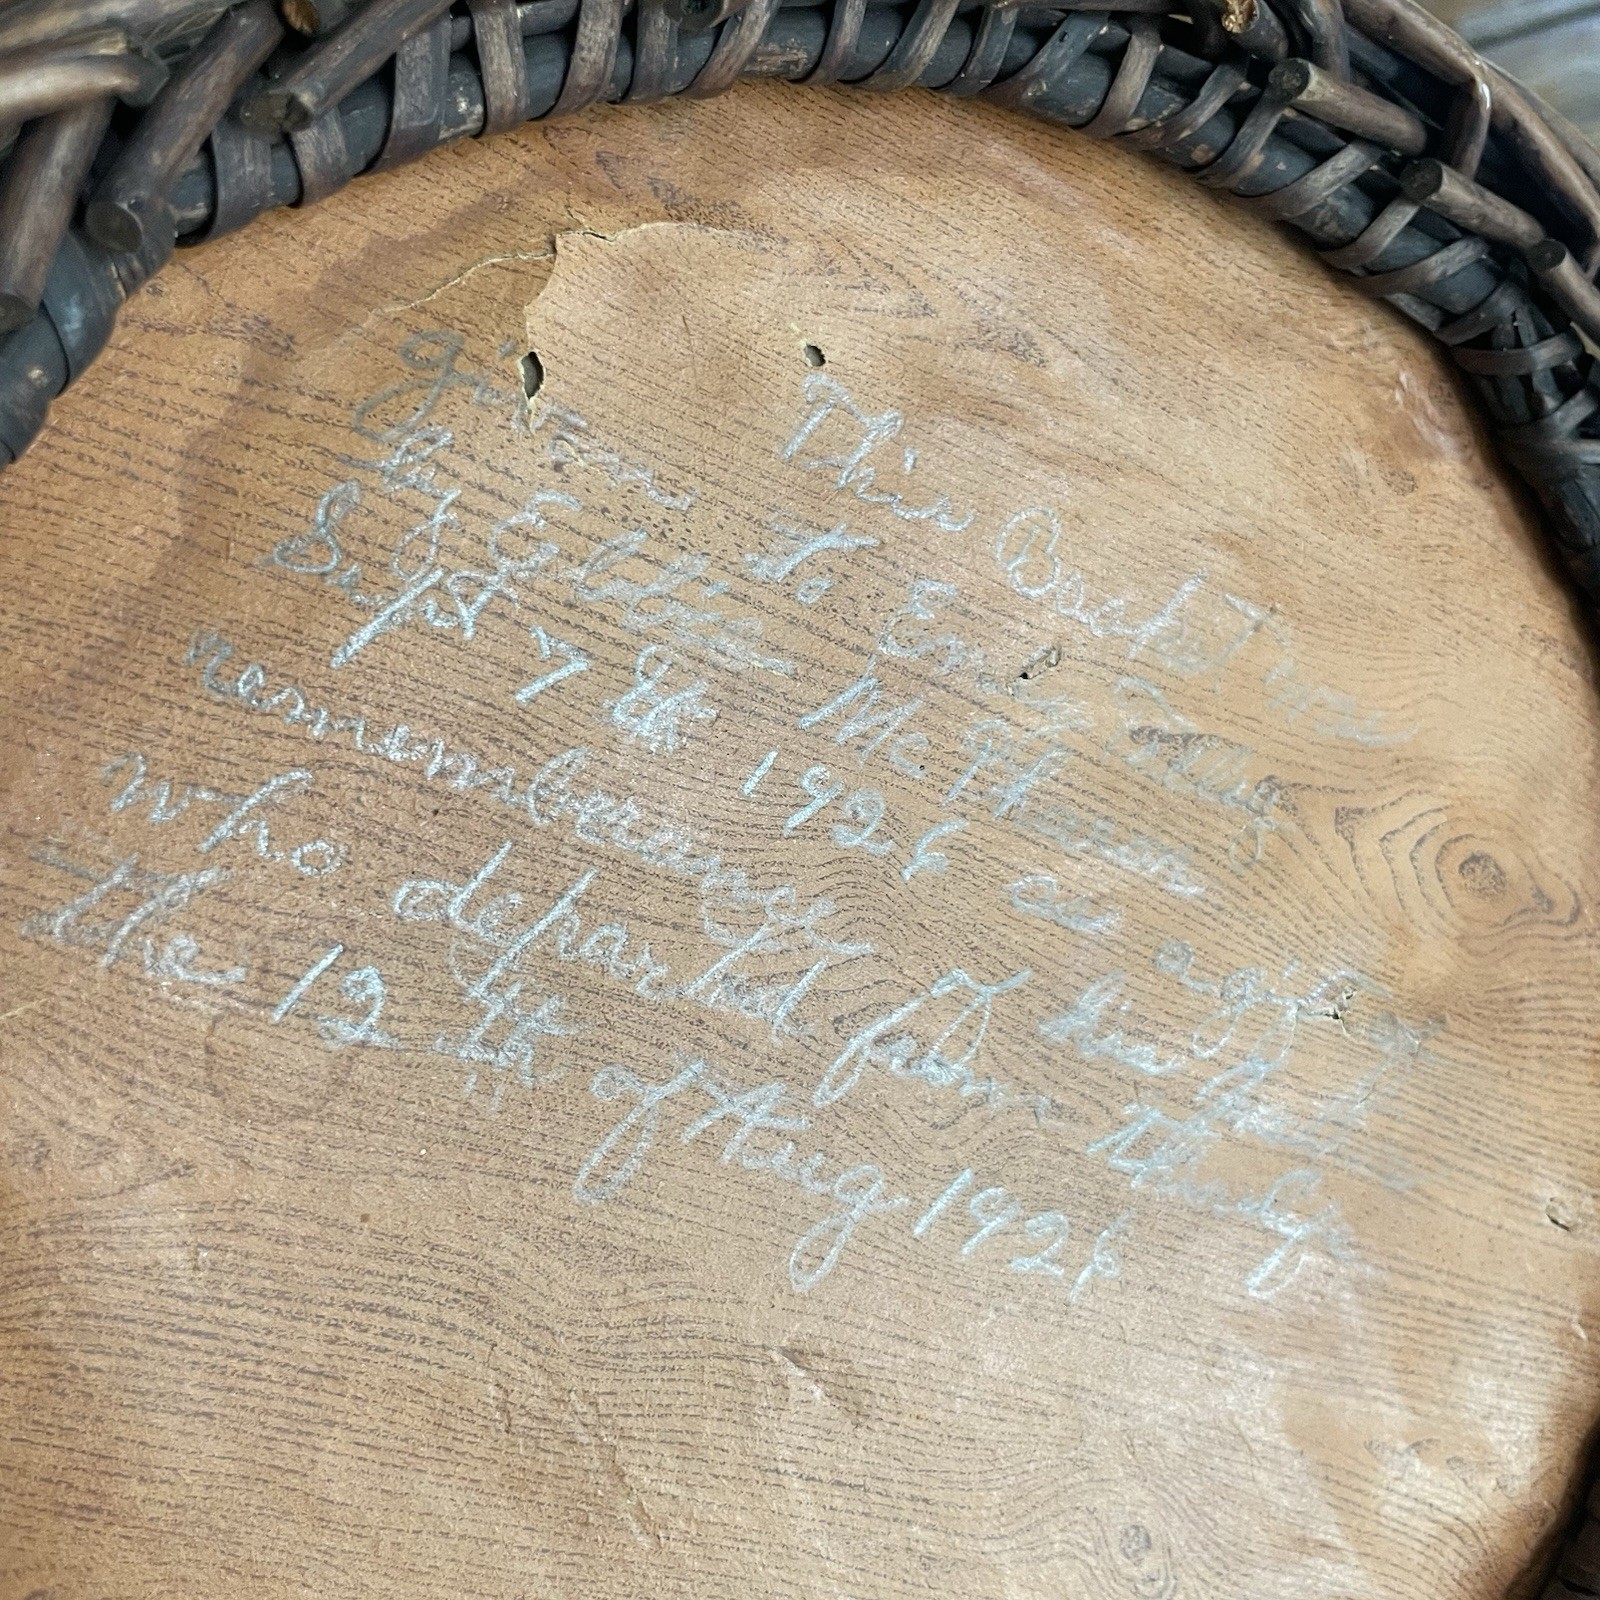 This Basket was
given to Emily Tilley
by Elbie McPherson
Sept 7th 1926 as a gift
remembrance
who departed from this life
the 12th of Aug 1926